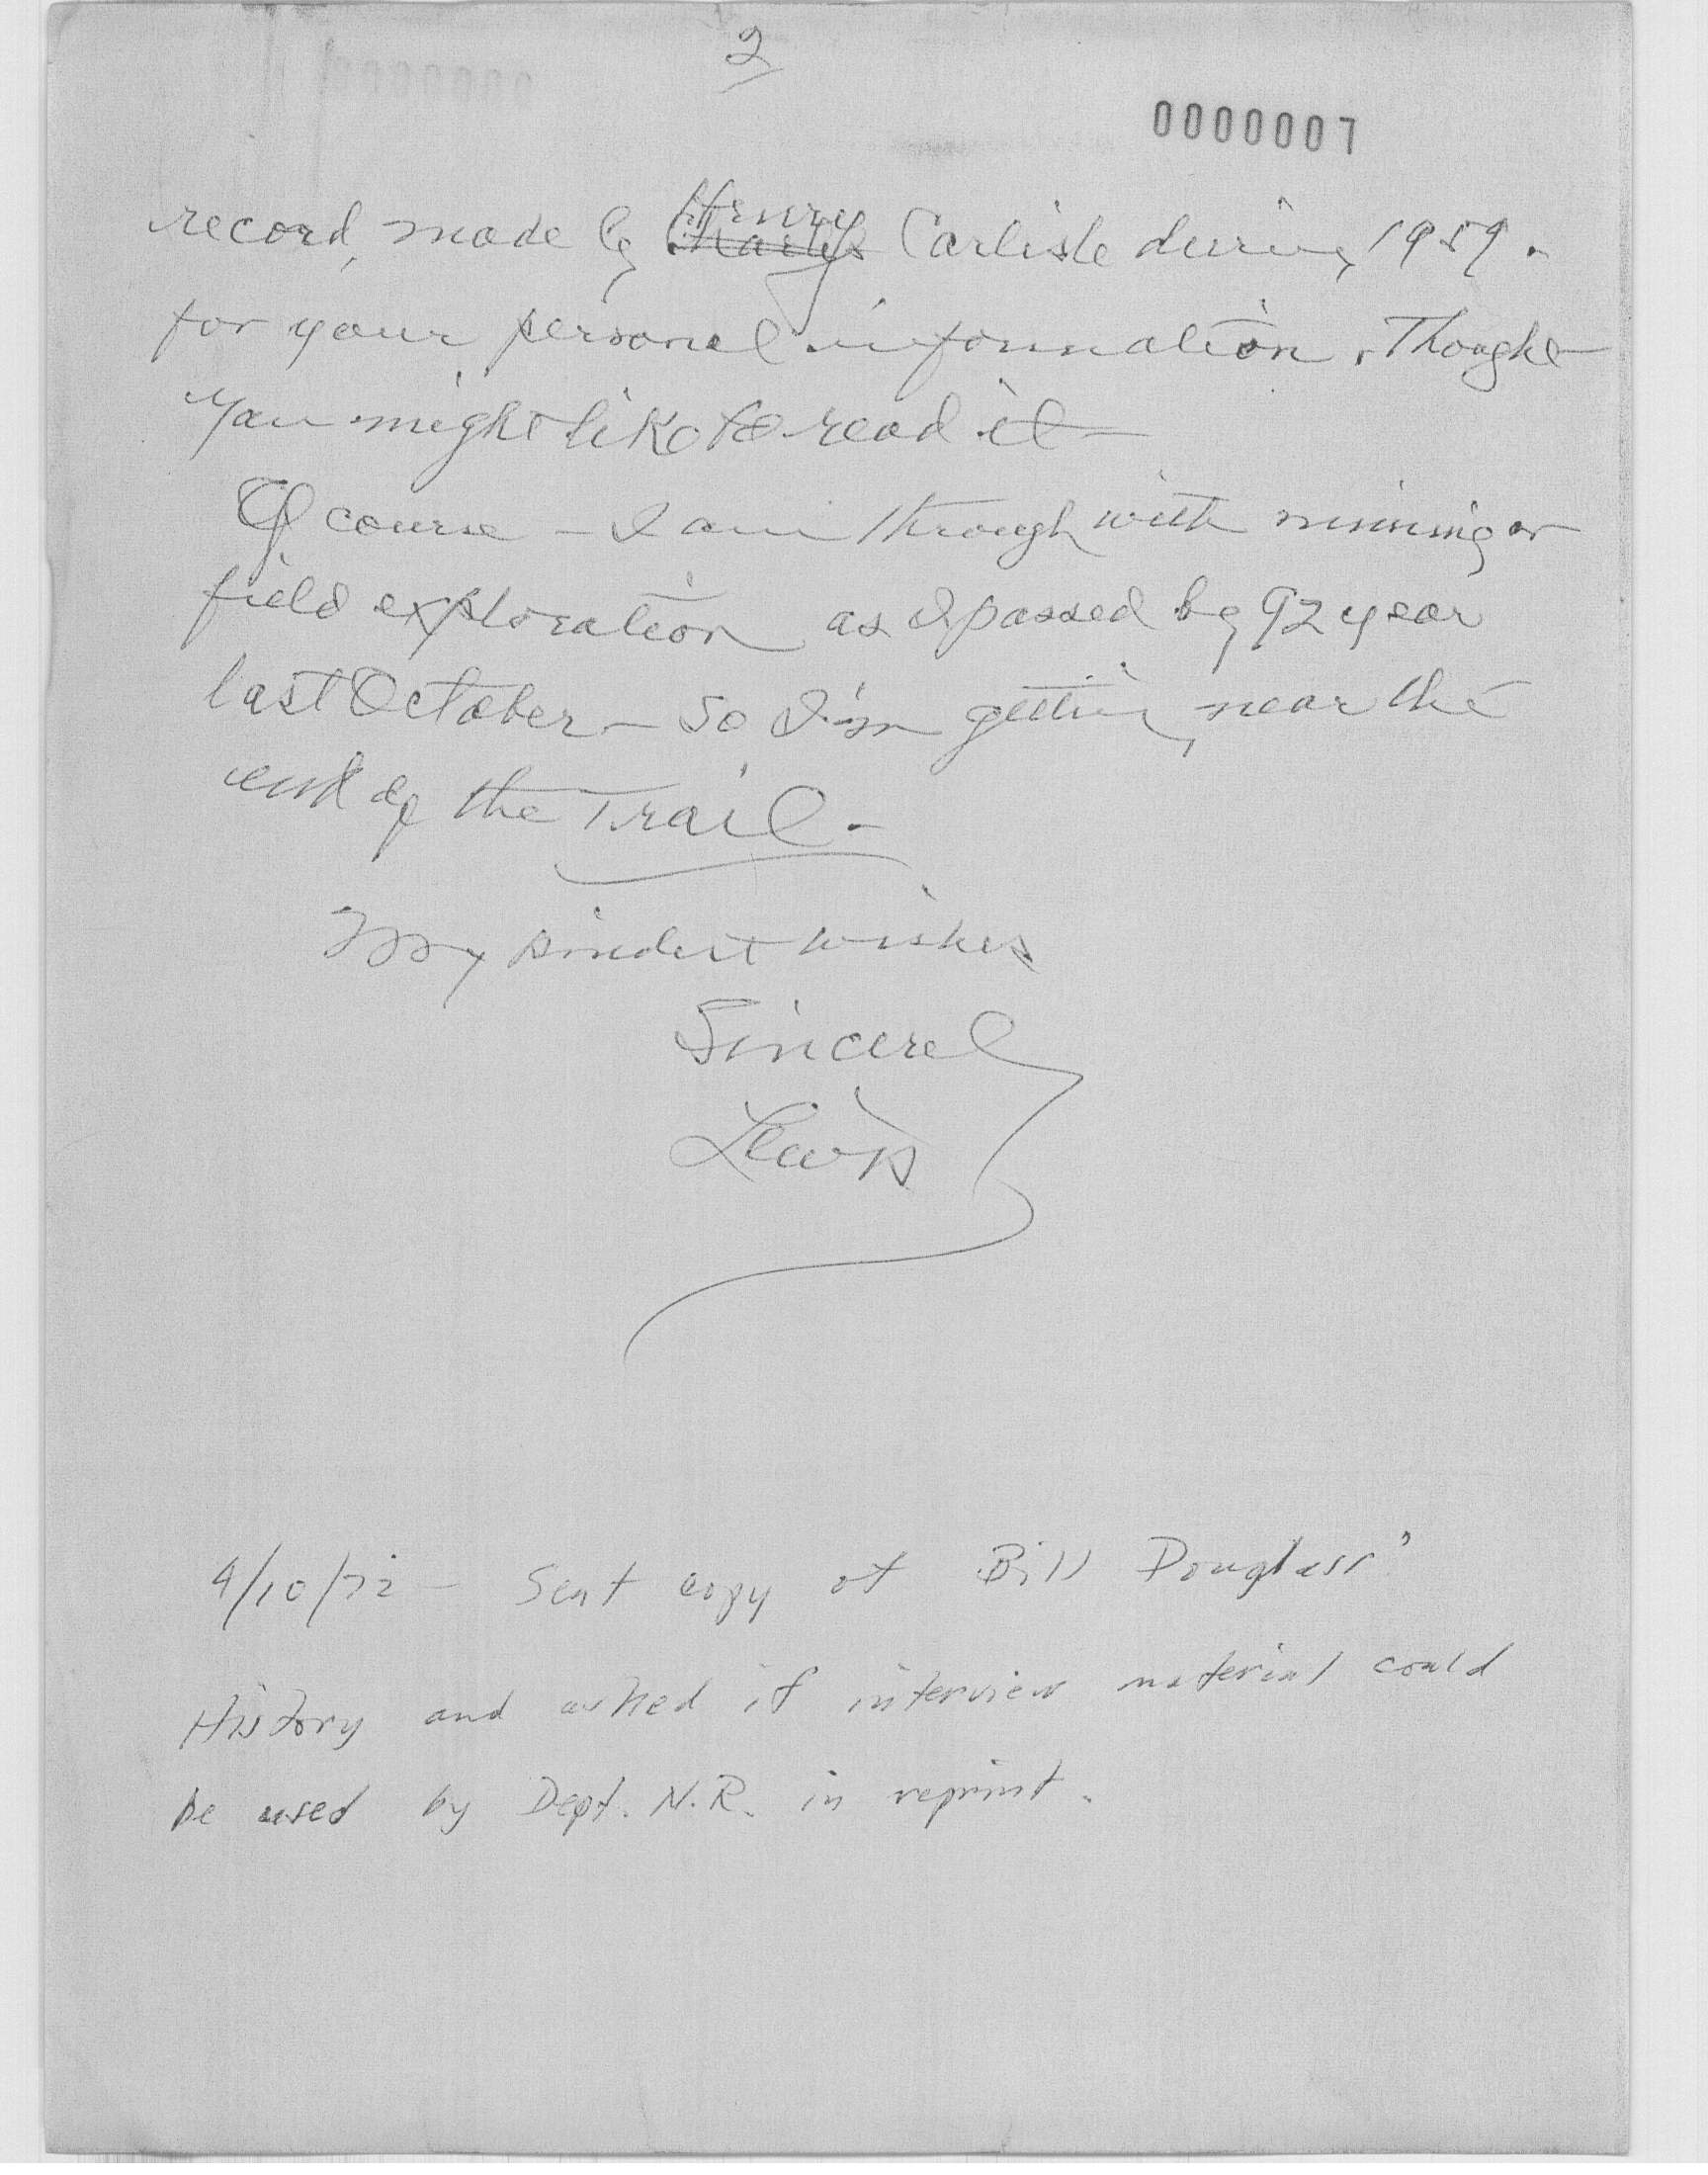 2
0000007
record, made by Henry
Charles Carlisle during 1959.
for your personal information. Thought
you might like to read it—
Of course – I am through with mining or
field exploration as I passed by 92 year
last October – so I'm getting near the
end of the Trail –
My kindest wishes
Sincerely
Lewis
4/10/72 – Sent copy of Bill Douglass'
History and asked if interview material could
be used by Dept. N.R. in reprint.